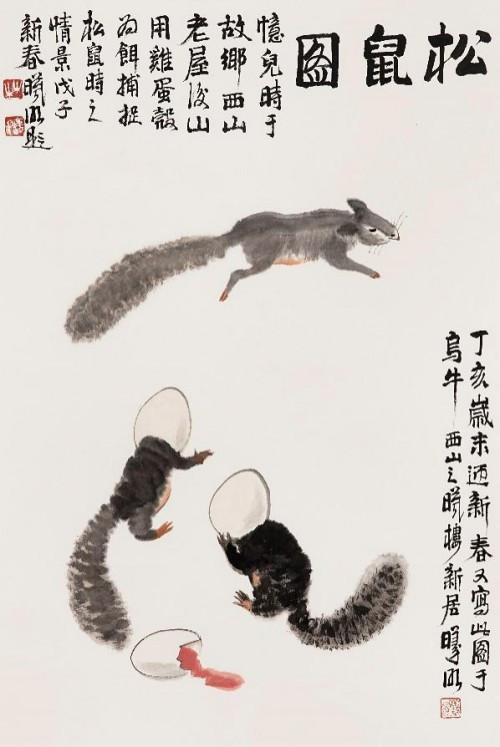 松鼠圖
憶兒時于
故鄉西山
老屋後山
用雞蛋殼
為餌捕捉
松鼠時之
情景戊子
新春曦明題
丁亥歲末迎新春又寫此圖于
烏牛西山之曦樓新居曦明